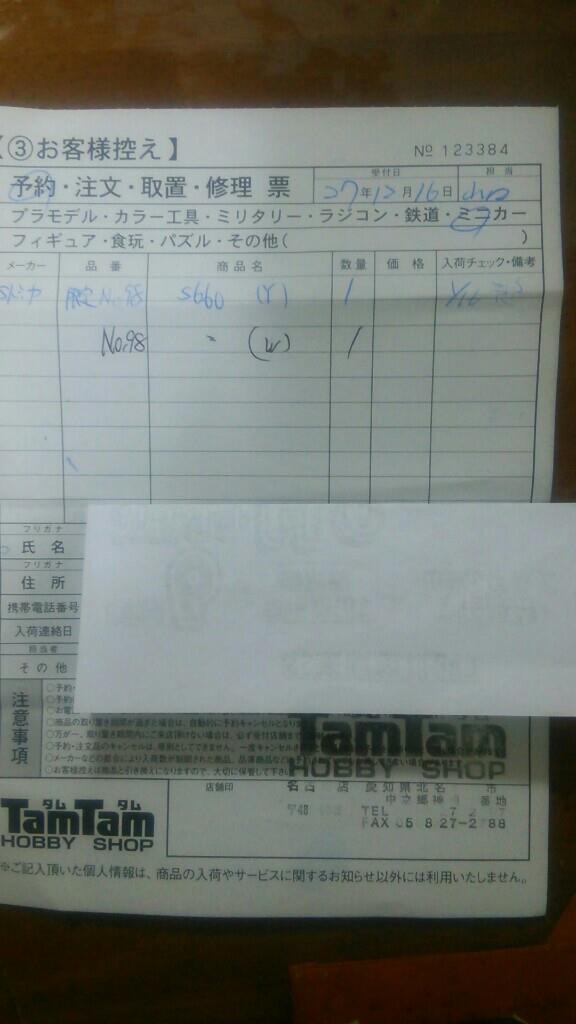 【③お客様控え】 No 123384
予約・注文・取置・修理 票 受付日 27年12月16日 担当
プラモデル・カラー工具・ミリタリー・ラジコン・鉄道・ミニカー
フィギュア・食玩・パズル・その他( )
メーカー 品番 商品名 数量 価格 入荷チェック・備考
限定No.98 S660 (Y) 1
No.98 〃 (W) 1
フリガナ
氏名
フリガナ
住所
携帯電話番号
入荷連絡日
担当者
その他
注意事項
○予約・
○予約
○お電
○商品の取り置き期間が過ぎた場合は、自動的に予約キャンセルとなり
○万が一、取り置き期間内にご来店頂けない場合は、必ず受付店舗まで
○予約・注文品のキャンセルは、原則としてできません。一度キャンセル
○メーカーなどの都合により入荷数が制限された商品、品薄商品など
○お客様控えは商品と引き換えになりますので、大切に保管して下さい
TamTam
HOBBY SHOP
店舗印
愛知県北名 市
番地
TEL
FAX
タム タム
TamTam
HOBBY SHOP
※ご記入頂いた個人情報は、商品の入荷やサービスに関するお知らせ以外には利用いたしません。